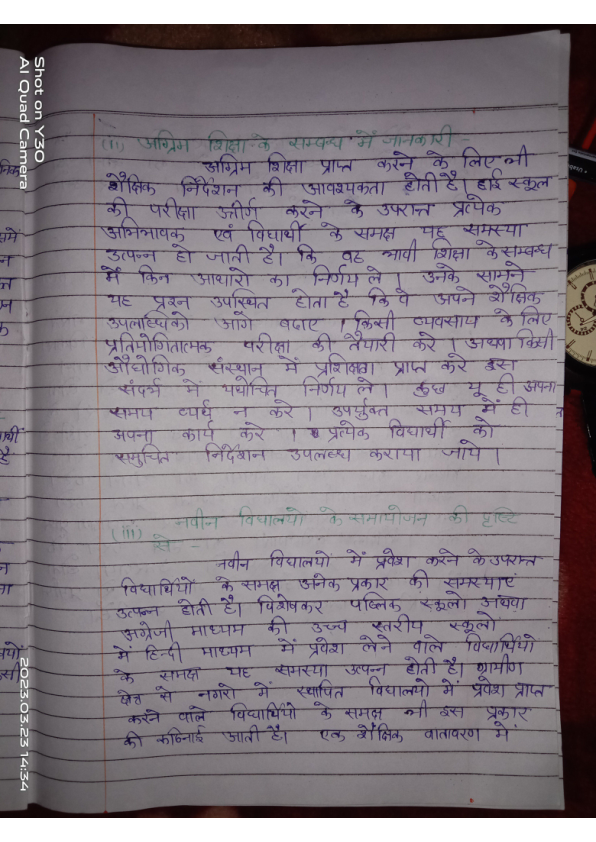 (ii) अग्रिम शिक्षा के सम्बन्ध में जानकारी -
अग्रिम शिक्षा प्राप्त करने के लिए भी
शैक्षिक निर्देशन की आवश्यकता होती है। हाई स्कूल
की परीक्षा उत्तीर्ण करने के उपरान्त प्रत्येक
अभिभावक एवं विद्यार्थी के समक्ष यह समस्या
उत्पन्न हो जाती है। कि वह भावी शिक्षा के सम्बन्ध
में किन आधारो का निर्णय ले। उनके सामने
यह प्रश्न उपस्थित होता है कि वे अपने शैक्षिक
उपलब्धि को आगे बढाए। किसी व्यवसाय के लिए
प्रतियोगितात्मक परीक्षा की तैयारी करे। अथवा किसी
औधोगिक संस्थान में प्रशिक्षण प्राप्त करे इस
संदर्भ में यथोचित निर्णय ले। कुछ यू ही अपना
समय व्यर्थ न करे। उपर्युक्त समय में ही
अपना कार्य करे। प्रत्येक विद्यार्थी को
समुचित निर्देशन उपलब्ध कराया जाये।
(iii) नवीन विद्यालयो के समायोजन की दृष्टि
से -
नवीन विद्यालयो में प्रवेश करने के उपरान्त
विद्यार्थियो के समक्ष अनेक प्रकार की समस्याएं
उत्पन्न होती है। विशेषकर पब्लिक स्कूलो अथवा
अंग्रेजी माध्यम की उच्च स्तरीय स्कूलो
में हिन्दी माध्यम में प्रवेश लेने वाले विद्यार्थियो
के समक्ष यह समस्या उत्पन्न होती है। ग्रामीण
क्षेत्र से नगरो में स्थापित विद्यालयो में प्रवेश प्राप्त
करने वाले विद्यार्थियो के समक्ष भी इस प्रकार
की कठिनाई आती है। एक शैक्षिक वातावरण में
Shot on Y30
AI Quad Camera
2023.03.23 14:34